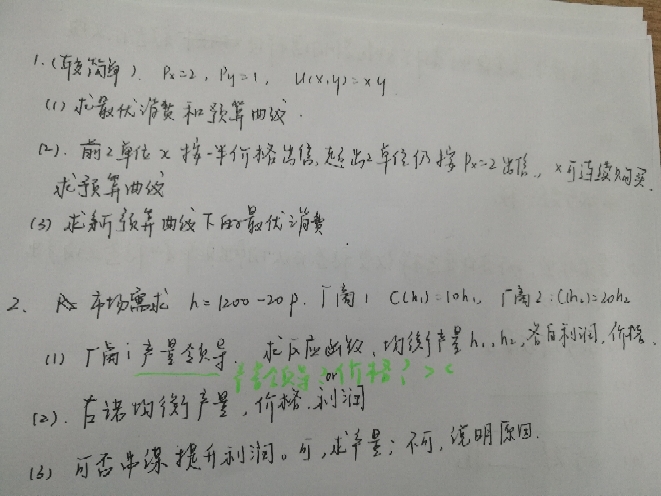 1.(较简单). Px=2, Py=1, U(x,y)=xy
(1) 求最优消费和预算曲线.
(2). 前2单位x按一半价格出售,超出2单位仍按Px=2出售, x可连续购买.
求预算曲线
(3) 求新预算曲线下的最优消费
2、 市场需求 h=1200-20p. 厂商1 C(h1)=10h1, 厂商2:C(h2)=20h2
(1) 厂商1产量领导. 求反应函数,均衡产量h1、h2,各自利润,价格.
产量领导?价格?><
or
(2). 古诺均衡产量,价格.利润
(3) 可否串谋提升利润。可,求产量;不可,说明原因.